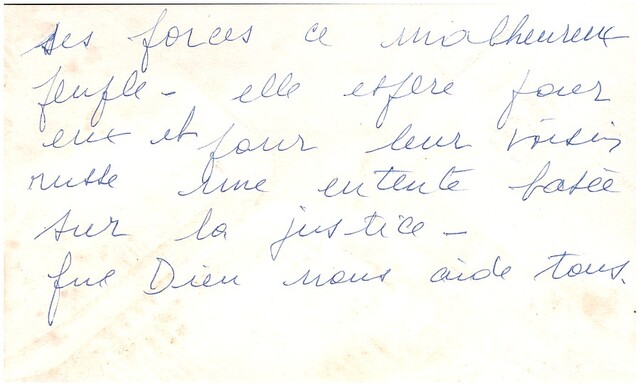 ses forces ce malheureux
peuple - elle espère pour
eux et pour leur voisin
russe une entente basée
sur la justice -
que Dieu nous aide tous.